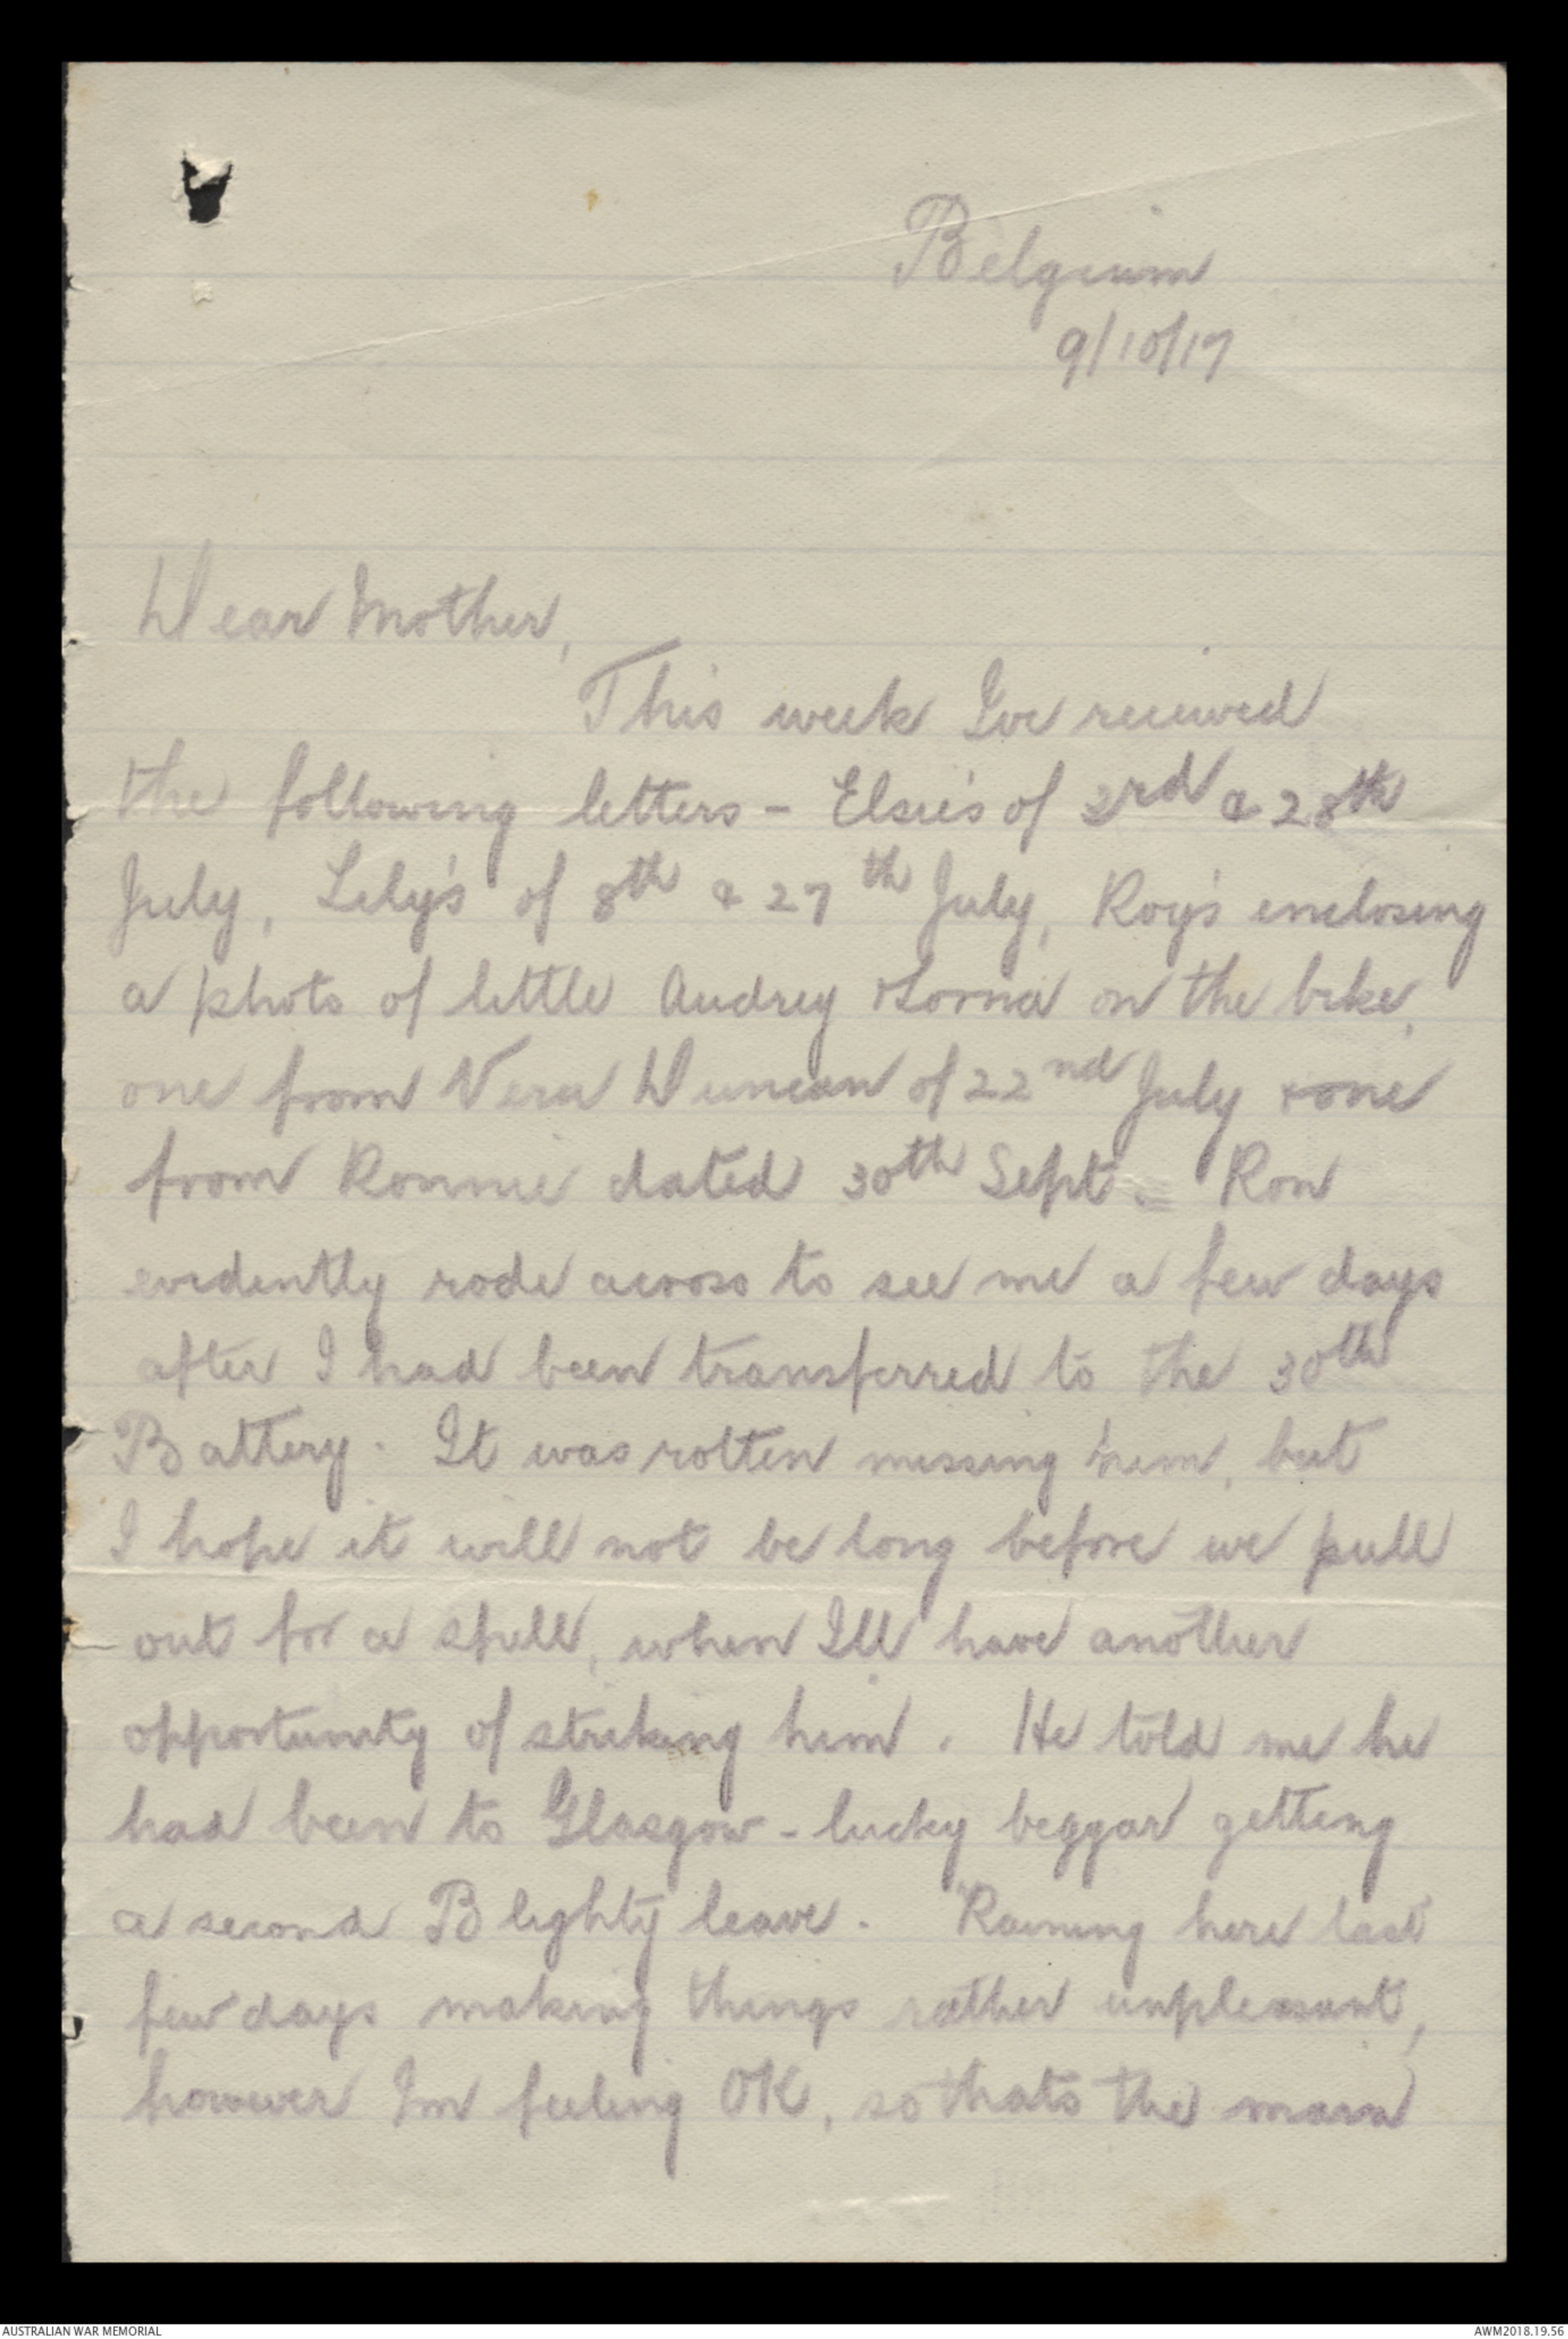 Belgium
9/10/17
Dear Mother,
This week Ive received
the following letters - Elsie's of 3rd & 28th
July, Lily's of 8th & 27th July, Roy's enclosing
a photo of little Audrey & Lorna on the bike,
one from Vera Duncan of 22nd July & one
from Ronnie dated 30th Sept. Ron
evidently rode across to see me a few days
after I had been transferred to the 30th
Battery. It was rotten missing him, but
I hope it will not be long before we pull
out for a spell, when Ill have another
opportunity of striking him. He told me he
had been to Glasgow - lucky beggar getting
a second Blighty leave. Raining here last
few days making things rather unpleasant,
however Im feeling OK, so thats the main
AUSTRALIAN WAR MEMORIAL
AWM2018.19.56